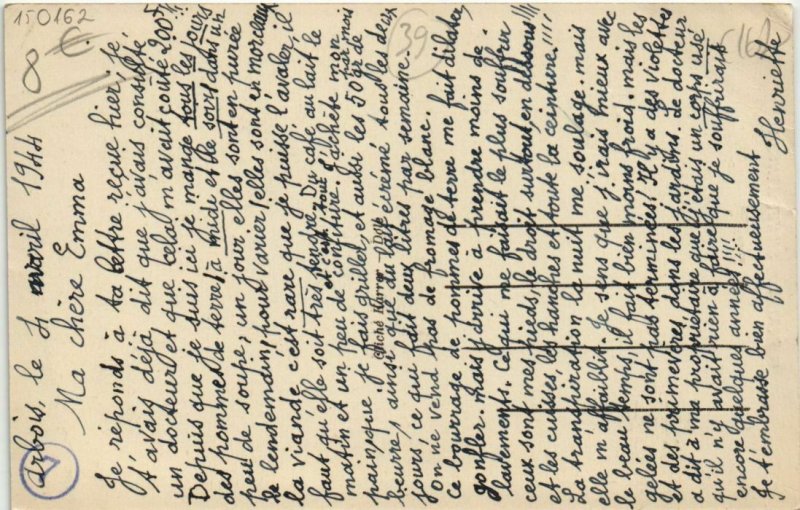 150162
8 €
39
(162)
Arbois, le 4 avril 1944
Ma chère Emma
Je réponds à ta lettre reçue hier, je
t'avais déjà dit que j'avais consulté
un docteur et que cela m'avait coûté 200F!!!
Depuis que je suis ici je mange tous les jours
des pommes de terre, à midi et le soir dans un
peu de soupe, un jour elles sont en purée
le lendemain, pour varier, elles sont en morceaux
la viande c'est rare que je puisse l'avaler il
faut qu'elle soit très tendre. Du café au lait le
matin et un peu de confiture. J'achète mon
et c'est tout!
pain, que je fais griller, et aussi les 50 gr de
par mois
beurre, ainsi que du lait écrémé tous les deux
jours, ce qui fait deux litres par semaine.
On ne vend pas de fromage blanc.
Ce bourrage de pommes de terre me fait dilater,
gonfler. Mais j'arrive à prendre moins de
lavement. Ce qui me faisait le plus souffrir
ceux sont mes pieds, le droit surtout, en dessous!!!
et les cuisses, les hanches et toute la ceinture!!!
La transpiration la nuit me soulage, mais
elle m'affaiblit. Je sens que j'irais mieux avec
le beau temps, il fait bien moins froid, mais les
gelées ne sont pas terminées! Il y a des violettes
et des primevères, dans les jardins. Le docteur
a dit à ma propriétaire que j'étais un corps usé
qu'il n'y avait rien à faire, que je souffrirais
encore quelques années!!!
Je t'embrasse bien affectueusement
Henriette
Cliché Karrer - Dole